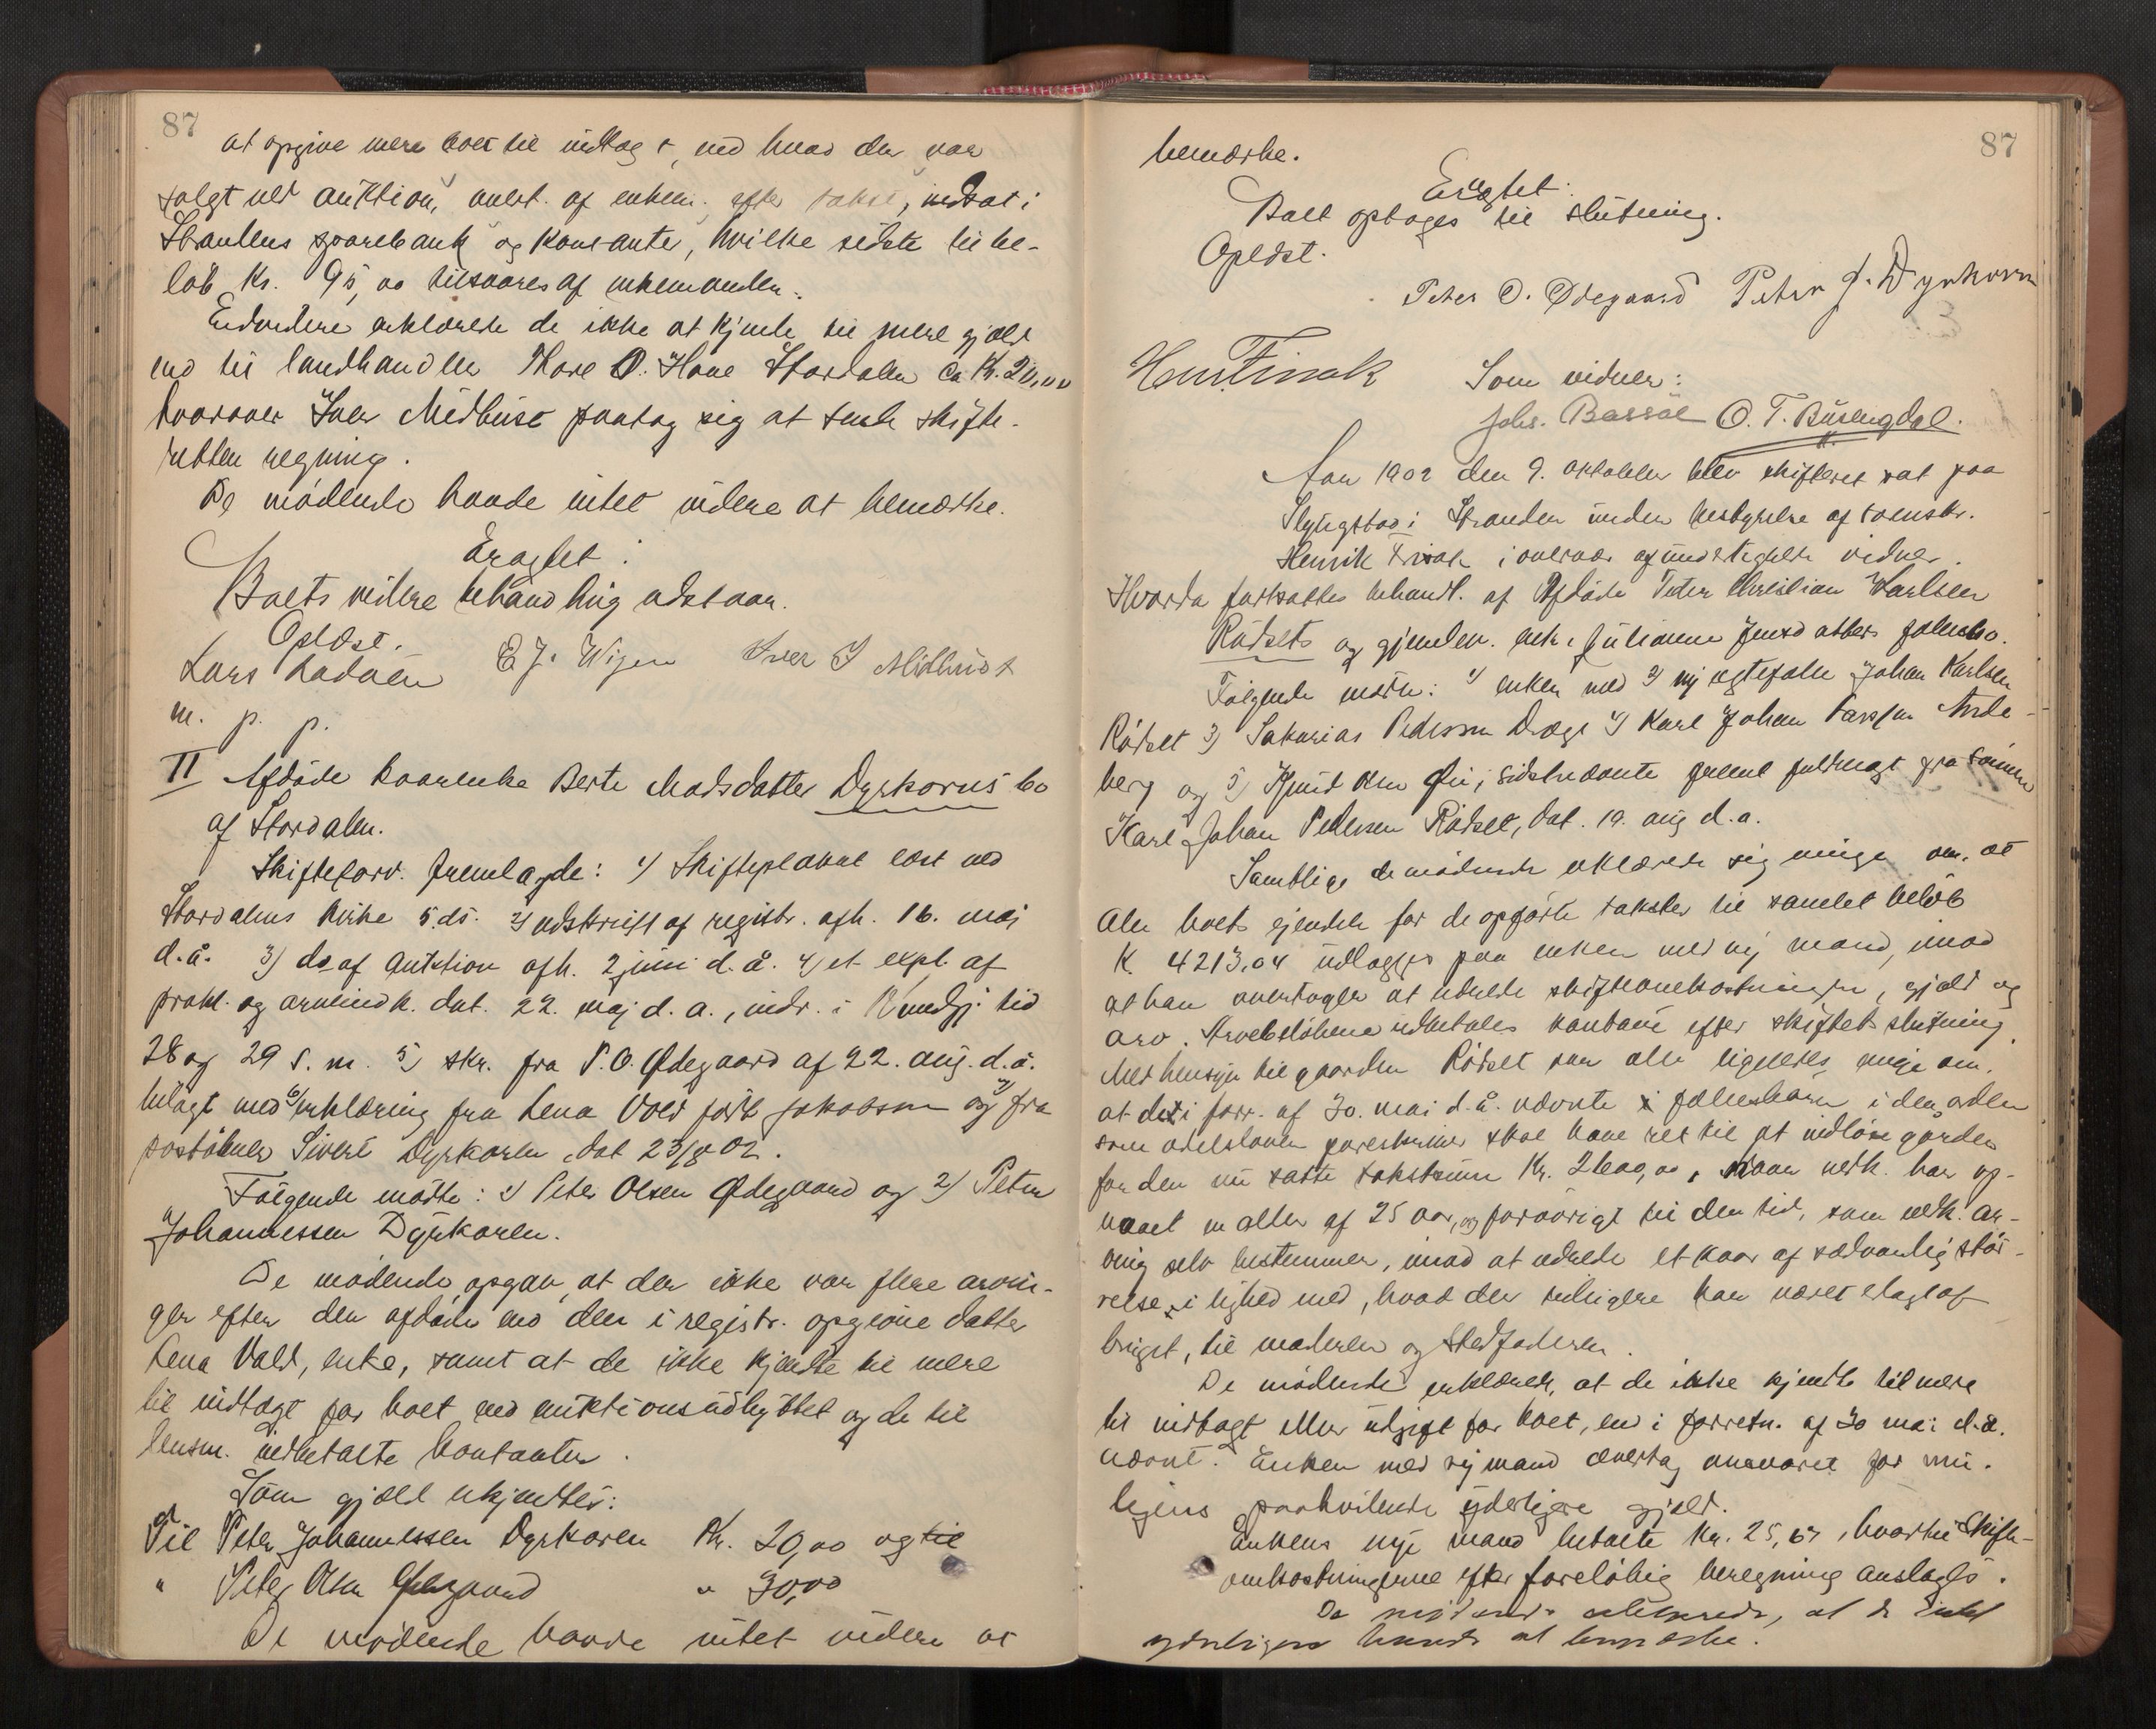 87
at opgive mere boet til indtægt, end hvad der var
solgt ved auktion, overt. af enken efter takst, indsat i
Strandens sparebank og kontanter, hvilke sidste til be-
løb Kr. 95,00 tilsvares af enkemanden.
Endvidere erklærede de ikke at kjende til mere gjæld
end til landhandler Kore O. Hove Stordalen ca Kr. 20,00
hvorover Iver Midhust paatog sig at sende skifte-
retten regning.
De mødende havde intet videre at bemærke.
Eragtet:
Boets videre behandling udstaar.
Oplæst.
Lars Ladøen E J. Wigen Iver I Midhust
m. p. p.
II Afdøde kaarenke Berte Madsdatter Dyrkorns bo
af Stordalen.
Skifteforv. fremlagde: 1) Skifteplakat læst ved
Stordalens kirke 5. ds. 2) udskrift af registr. afh. 16. maj
d.å. 3) do af Auktion afh. 2 juni d.å. 4) et expl. af
prokl. og arveindk. dat. 22. maj d.a., indr. i Kundgj. tid
28 og 29 s. m. 5) skr. fra P.O. Ødegaard af 22. aug. d.å.
bilagt med 6) erklæring fra Lena Vold født Jakobsen og 7) fra
postaabner Sivert Dyrkoren, dat 23/8 02.
Følgende mødte: 1) Peter Olsen Ødegaard og 2) Peter
Johannessen Dyrkoren.
De mødende opgav, at der ikke var flere arvin-
ger efter den afdøde end den i registr. opgivne datter
Lena Vald, enke, samt at de ikke kjendte til mere
til indtægt for boet end auktionsudbyttet og de til
lensm. indbetalte kontanter.
Som gjæld erkjendtes:
Til Peter Johannessen Dyrkoren Kr. 20,00 og til
" Peter Olsen Ødegaard " 30,00
De mødende havde intet videre at
87
bemærke.
Eragtet:
Boet optages til slutning.
Oplæst.
Peter O. Ødegaard Peter J. Dyrkorn
Hen Finak Som vidner:
Johs. Bassøe O. T. Busengdal.
Aar 1902 den 9. oktober blev skifteret sat paa
Slyngstad i Stranden under bestyrelse af sorenskr.
Henrik i overvær af undertegnede vidner.
Hvorda fortsattes behandl. af Afdøde Peter Christian Karlsen
Rødsets og gjenlev. enke Julianne Jensdatters fællesbo.
Følgende mødte: 1) enken med 2) ny ægtefælle Johan Karlsen
Rødset 3) Sakarias Pedersen Drage 4) Karl Johan Larssen Anda-
berg og 5) Knud Olsen Øie; sidstnævnte fremla fuldmagt fra sønnen
Karl Johan Pedersen Rødset, dat. 19. aug d.a.
Samtlige de mødende erklærede sig enige om, at
alle boets eiendele for de opførte takster til samlet beløb
K. 4213,04 udlægges paa enken med ny mand, imod
at han overtager at udrede skifteomkostningerne, gjæld og
arv. Arvebeløbene udbetales kontant efter skiftets slutning.
Med hensyn til gaarden Rødset var alle ligeledes enige om,
at det i forr. af 30. mai d.å. nævnte fællesbarn i den orden
som odelsloven foreskriver skal have ret til at indløse gården
for den nu satte takstsum Kr. 2600,00, naar vedk. har op-
naaet en alder af 25 aar, og forøvrigt til den tid, som vedk. ar-
ving selv bestemmer, imod at udrede et kaar af sædvanlig stør-
relse, i lighed med, hvad der tidligere har været udlagt af
bruget, til moderen og stedfaderen.
De mødende erklærede, at de ikke kjendte til mere
til indtægt eller udgift for boet, end i forretn. af 30 mai d.å.
nævnt. Enken med ny mand overtog ansvaret for mu-
ligens paahvilende yderligere gjæld.
Enkens nye mand betalte Kr. 25,67, hvortil skifte-
omkostningerne efter foreløbig beregning anslages.
De mødende erklærede, at de intet
yderligere havde at bemærke.